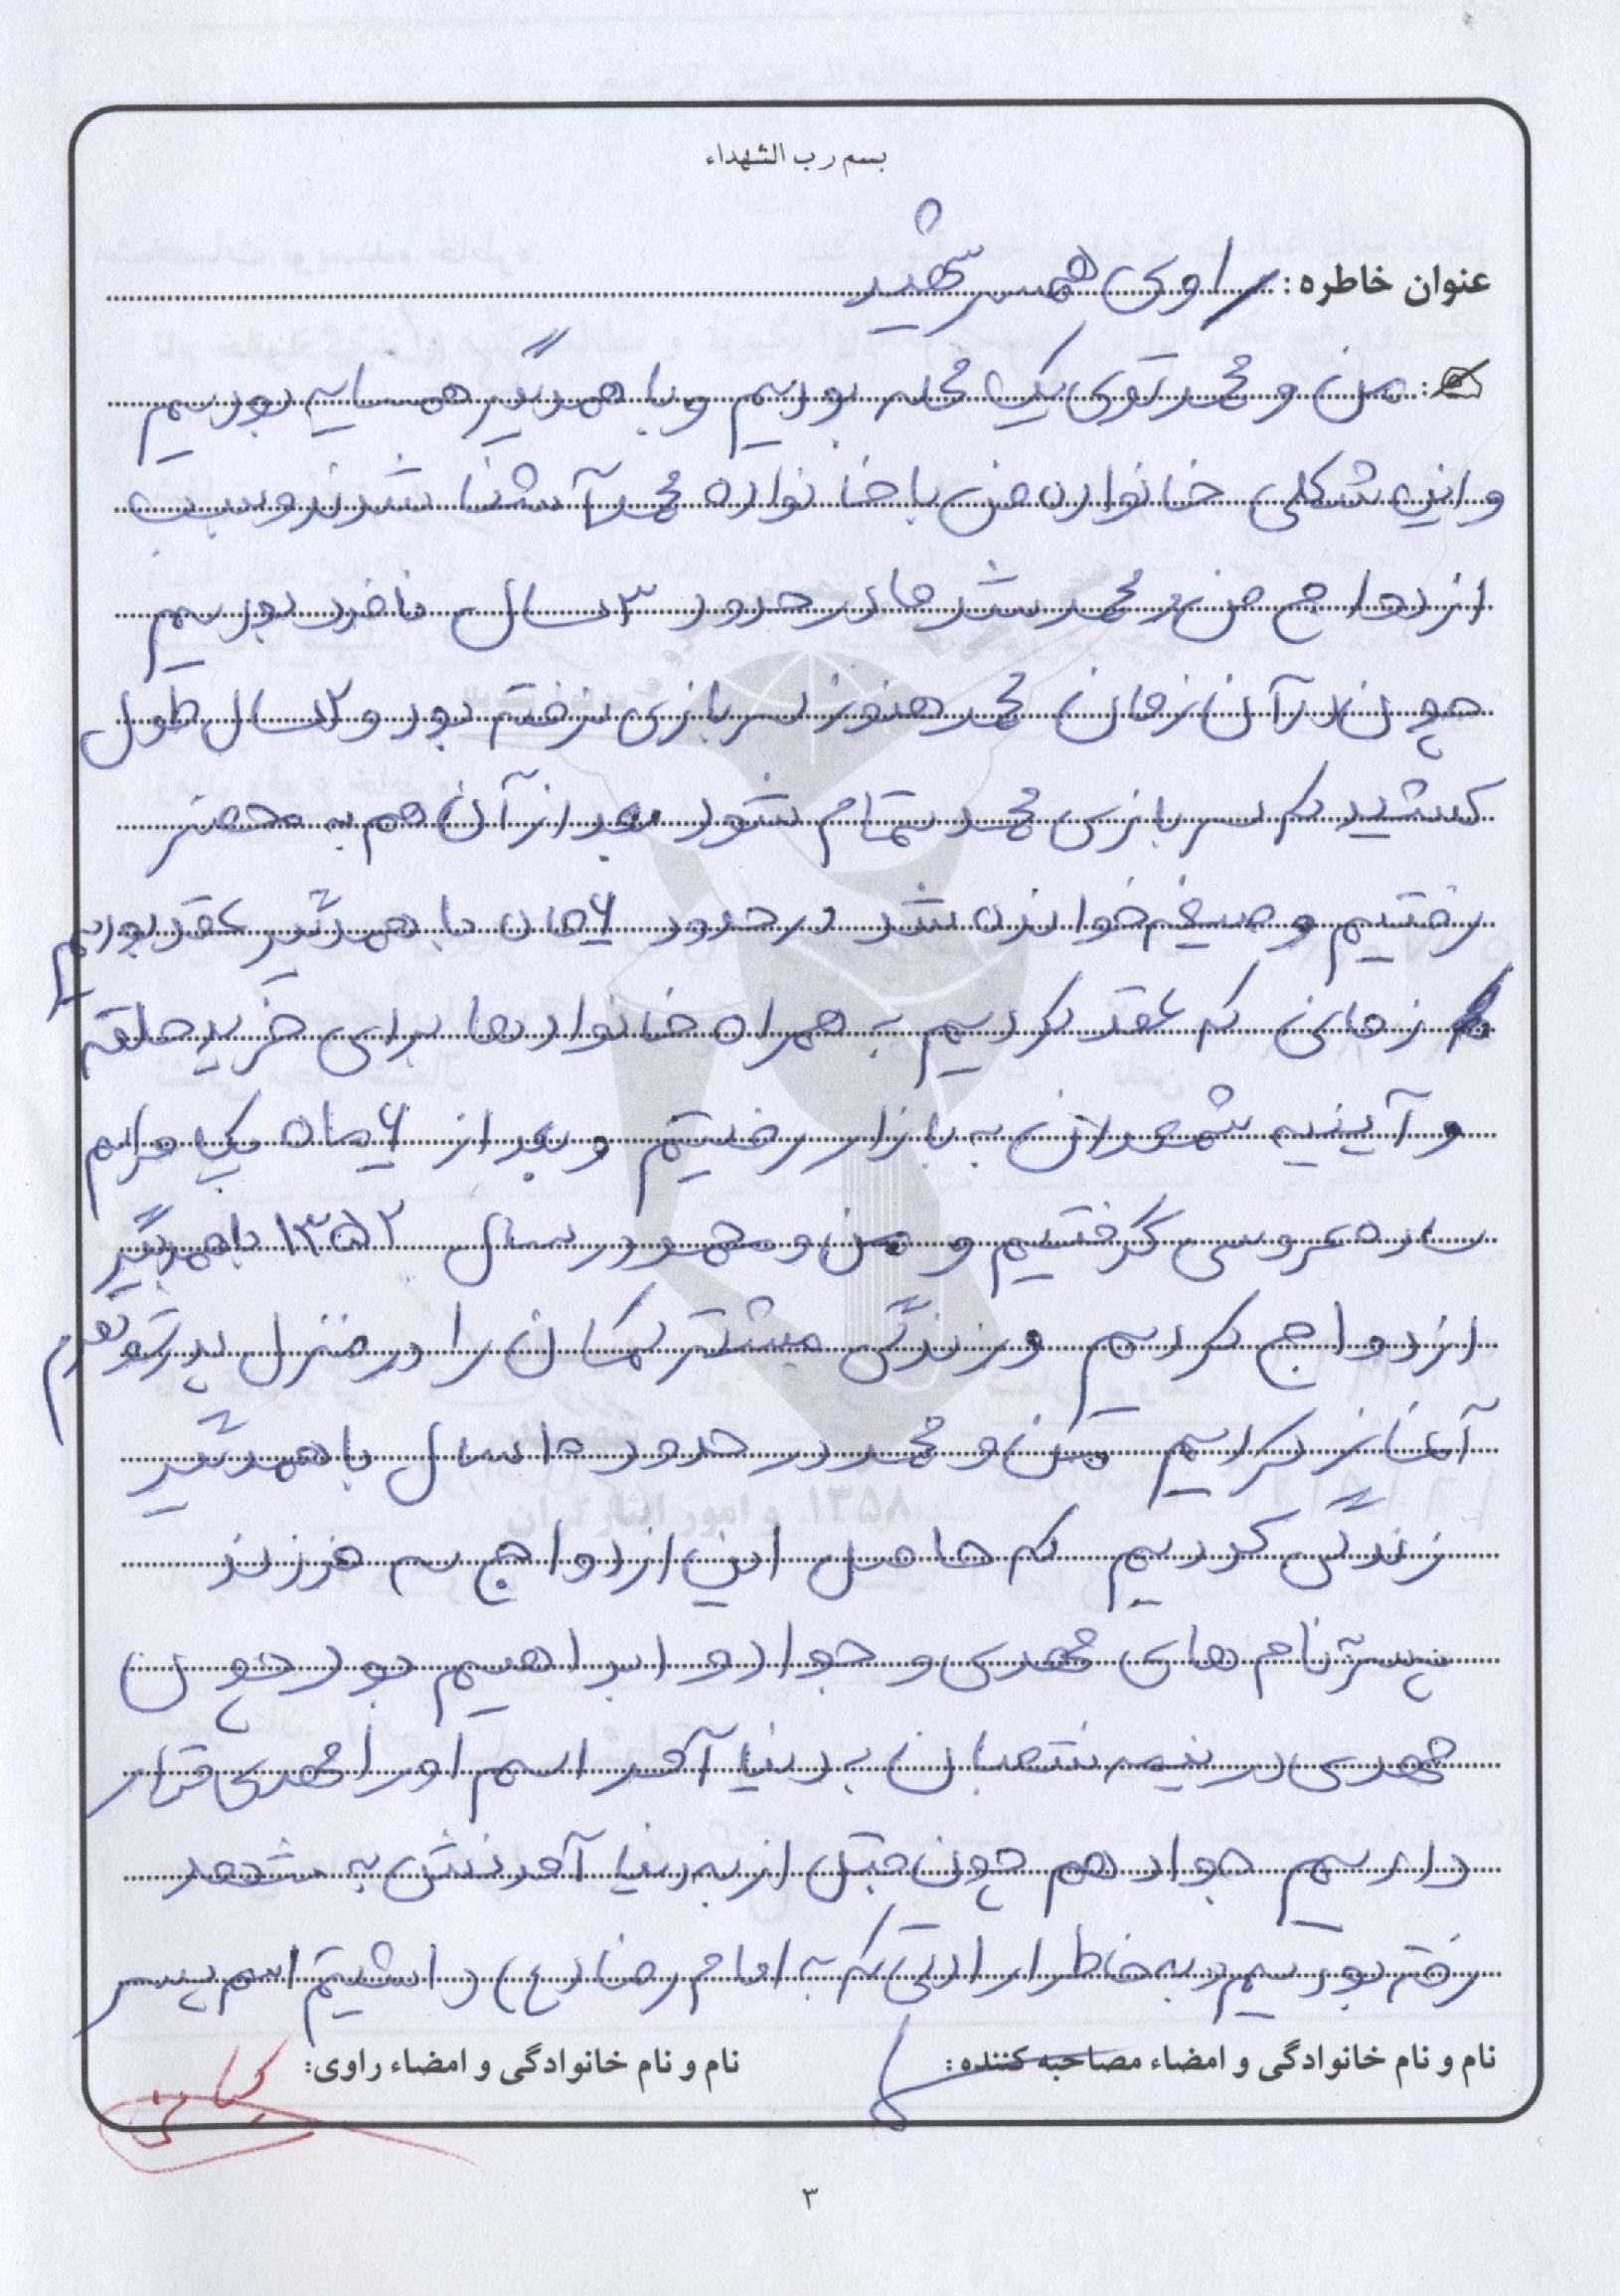 بسم رب الشهداء
عنوان خاطره: راوی همسر شهید
من و محمد توی یک محله بودیم و با همدیگر همسایه بودیم
و این شکلی خانواده من با خانواده محمد آشنا شدند و سبب
ازدواج من و محمد شد ما در حدود ۳ سال نامزد بودیم
چون در آن زمان محمد هنوز سربازی نرفته بود و ۲ سال طول
کشید که سربازی محمد تمام شود بعد از آن هم به محضر
رفتیم و صیغه خوانده شد در حدود ۶ ماه با همدیگر عقد بودیم
زمانی که عقد کردیم به همراه خانوادها برای خرید حلقه
و آیینیه شمعدان به بازار رفتیم و بعد از ۶ ماه یک مراسم
ساده عروسی گرفتیم و من و محمد در سال ۱۳۵۲ با همدیگر
ازدواج کردیم و زندگی مشترکمان را در منزل پدر شوهرم
آغاز کردیم من و محمد در حدود ۱۰ سال با همدیگر
زندگی کردیم که حاصل این ازدواج سه فرزند
پسر بنام های مهدی و جواد و ابراهیم بود چون
مهدی در نیمه شعبان به دنیا آمد اسم او را مهدی قرار
دادیم جواد هم چون قبل از به دنیا آمدنش به مشهد
رفته بودیم و به خاطر ارادتی که به امام رضا (ع) داشتیم اسم پسر
نام و نام خانوادگی و امضاء مصاحبه کننده:
نام و نام خانوادگی و امضاء راوی:
۳